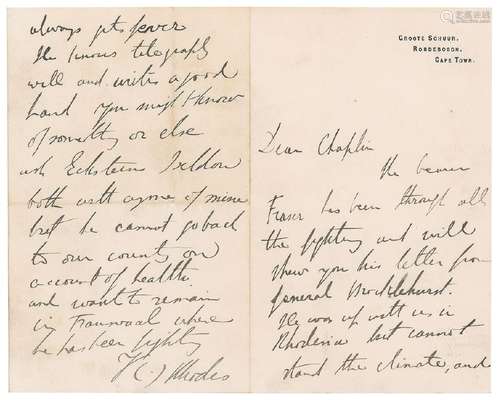 GROOTE SCHUUR,
RONDEBOSCH,
CAPE TOWN.
Dear Chaplin
The bearer
Fraser has been through all
the fighting and will
shew you his letter from
general Brocklehurst.
He was up with us in
Rhodesia but cannot
stand the climate, and
always gets fever
He knows telegraphy
well and writes a good
hand You might know
of something or else
ask Eckstein
both
but he cannot go back
to our country on
account of health
and wants to remain
in Transvaal where
he has been fighting
Yrs CJRhodes